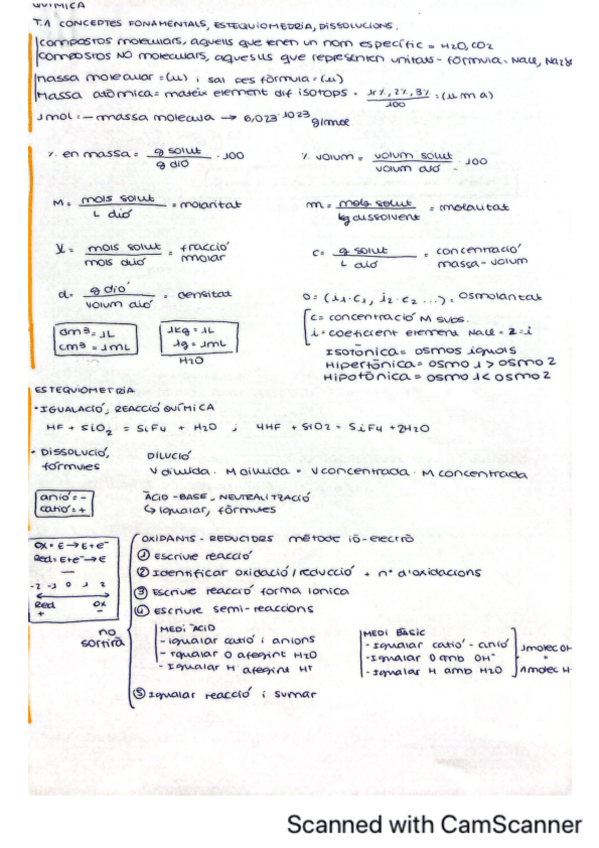 QUÍMICA
T.1 CONCEPTES FONAMENTALS, ESTEQUIOMETRIA, DISSOLUCIONS.
compostos moleculars, aquells que tenen un nom específic = H2O, CO2
compostos NO moleculars, aquells que representen unitats - fórmula = NaCl,
massa molecular = (u) i sal es fórmula = (u)
Massa atòmica = mateix element dif isòtops = 1%, 2%, 3% / 100 = (u m a)
1 mol = massa molecula → 6,023·10^23
% en massa = g solut / g dió · 100
% volum = volum solut / volum dió · 100
M = mols solut / L dió = molaritat
m = mols solut / kg dissolvent = molalitat
χ = mols solut / mols dió = fracció molar
c = g solut / L dió = concentració massa-volum
d = g dió / volum dió = densitat
O = (i1·c1, i2·c2 ...) = Osmolaritat
dm³ = 1L
cm³ = 1mL
1kg = 1L
1g = 1mL
H2O
c = concentració M subs.
i = coeficient element NaCl = 2 = i
Isotònica = osmos iguals
Hipertònica = osmo 1 > osmo 2
Hipotònica = osmo 1 < osmo 2
ESTEQUIOMETRIA
· IGUALACIÓ, REACCIÓ QUÍMICA
HF + SiO2 = SiF4 + H2O ; 4HF + SiO2 = SiF4 + 2H2O
· DISSOLUCIÓ, fórmules
DILUCIÓ
V diluida · M diluida = V concentrada · M concentrada
anió = -
catió = +
ÀCID - BASE, NEUTRALITZACIÓ
↳ Igualar, fórmules
OX = E → E + e⁻
Red = E + e⁻ → E
-2 -1 0 1 2
Red OX
+ -
no sortirà
OXIDANTS - REDUCTORS mètode ió-electró
① Escriure reacció
② Identificar oxidació/reducció + nº d'oxidacions
③ Escriure reacció forma iònica
④ Escriure semi-reaccions
MEDI ÀCID
- igualar catió i anions
- igualar O afegint H2O
- Igualar H afegint H+
MEDI BÀSIC
- Igualar catió - anió
- Igualar O amb OH⁻
- Igualar H amb H2O
1 molec OH
1 molec H
⑤ Igualar reacció i sumar
Scanned with CamScanner